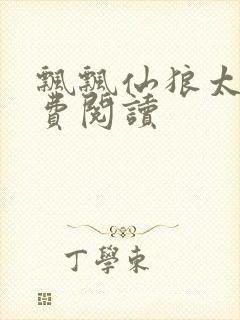 飄飄仙狼太
費閱讀
丁學東